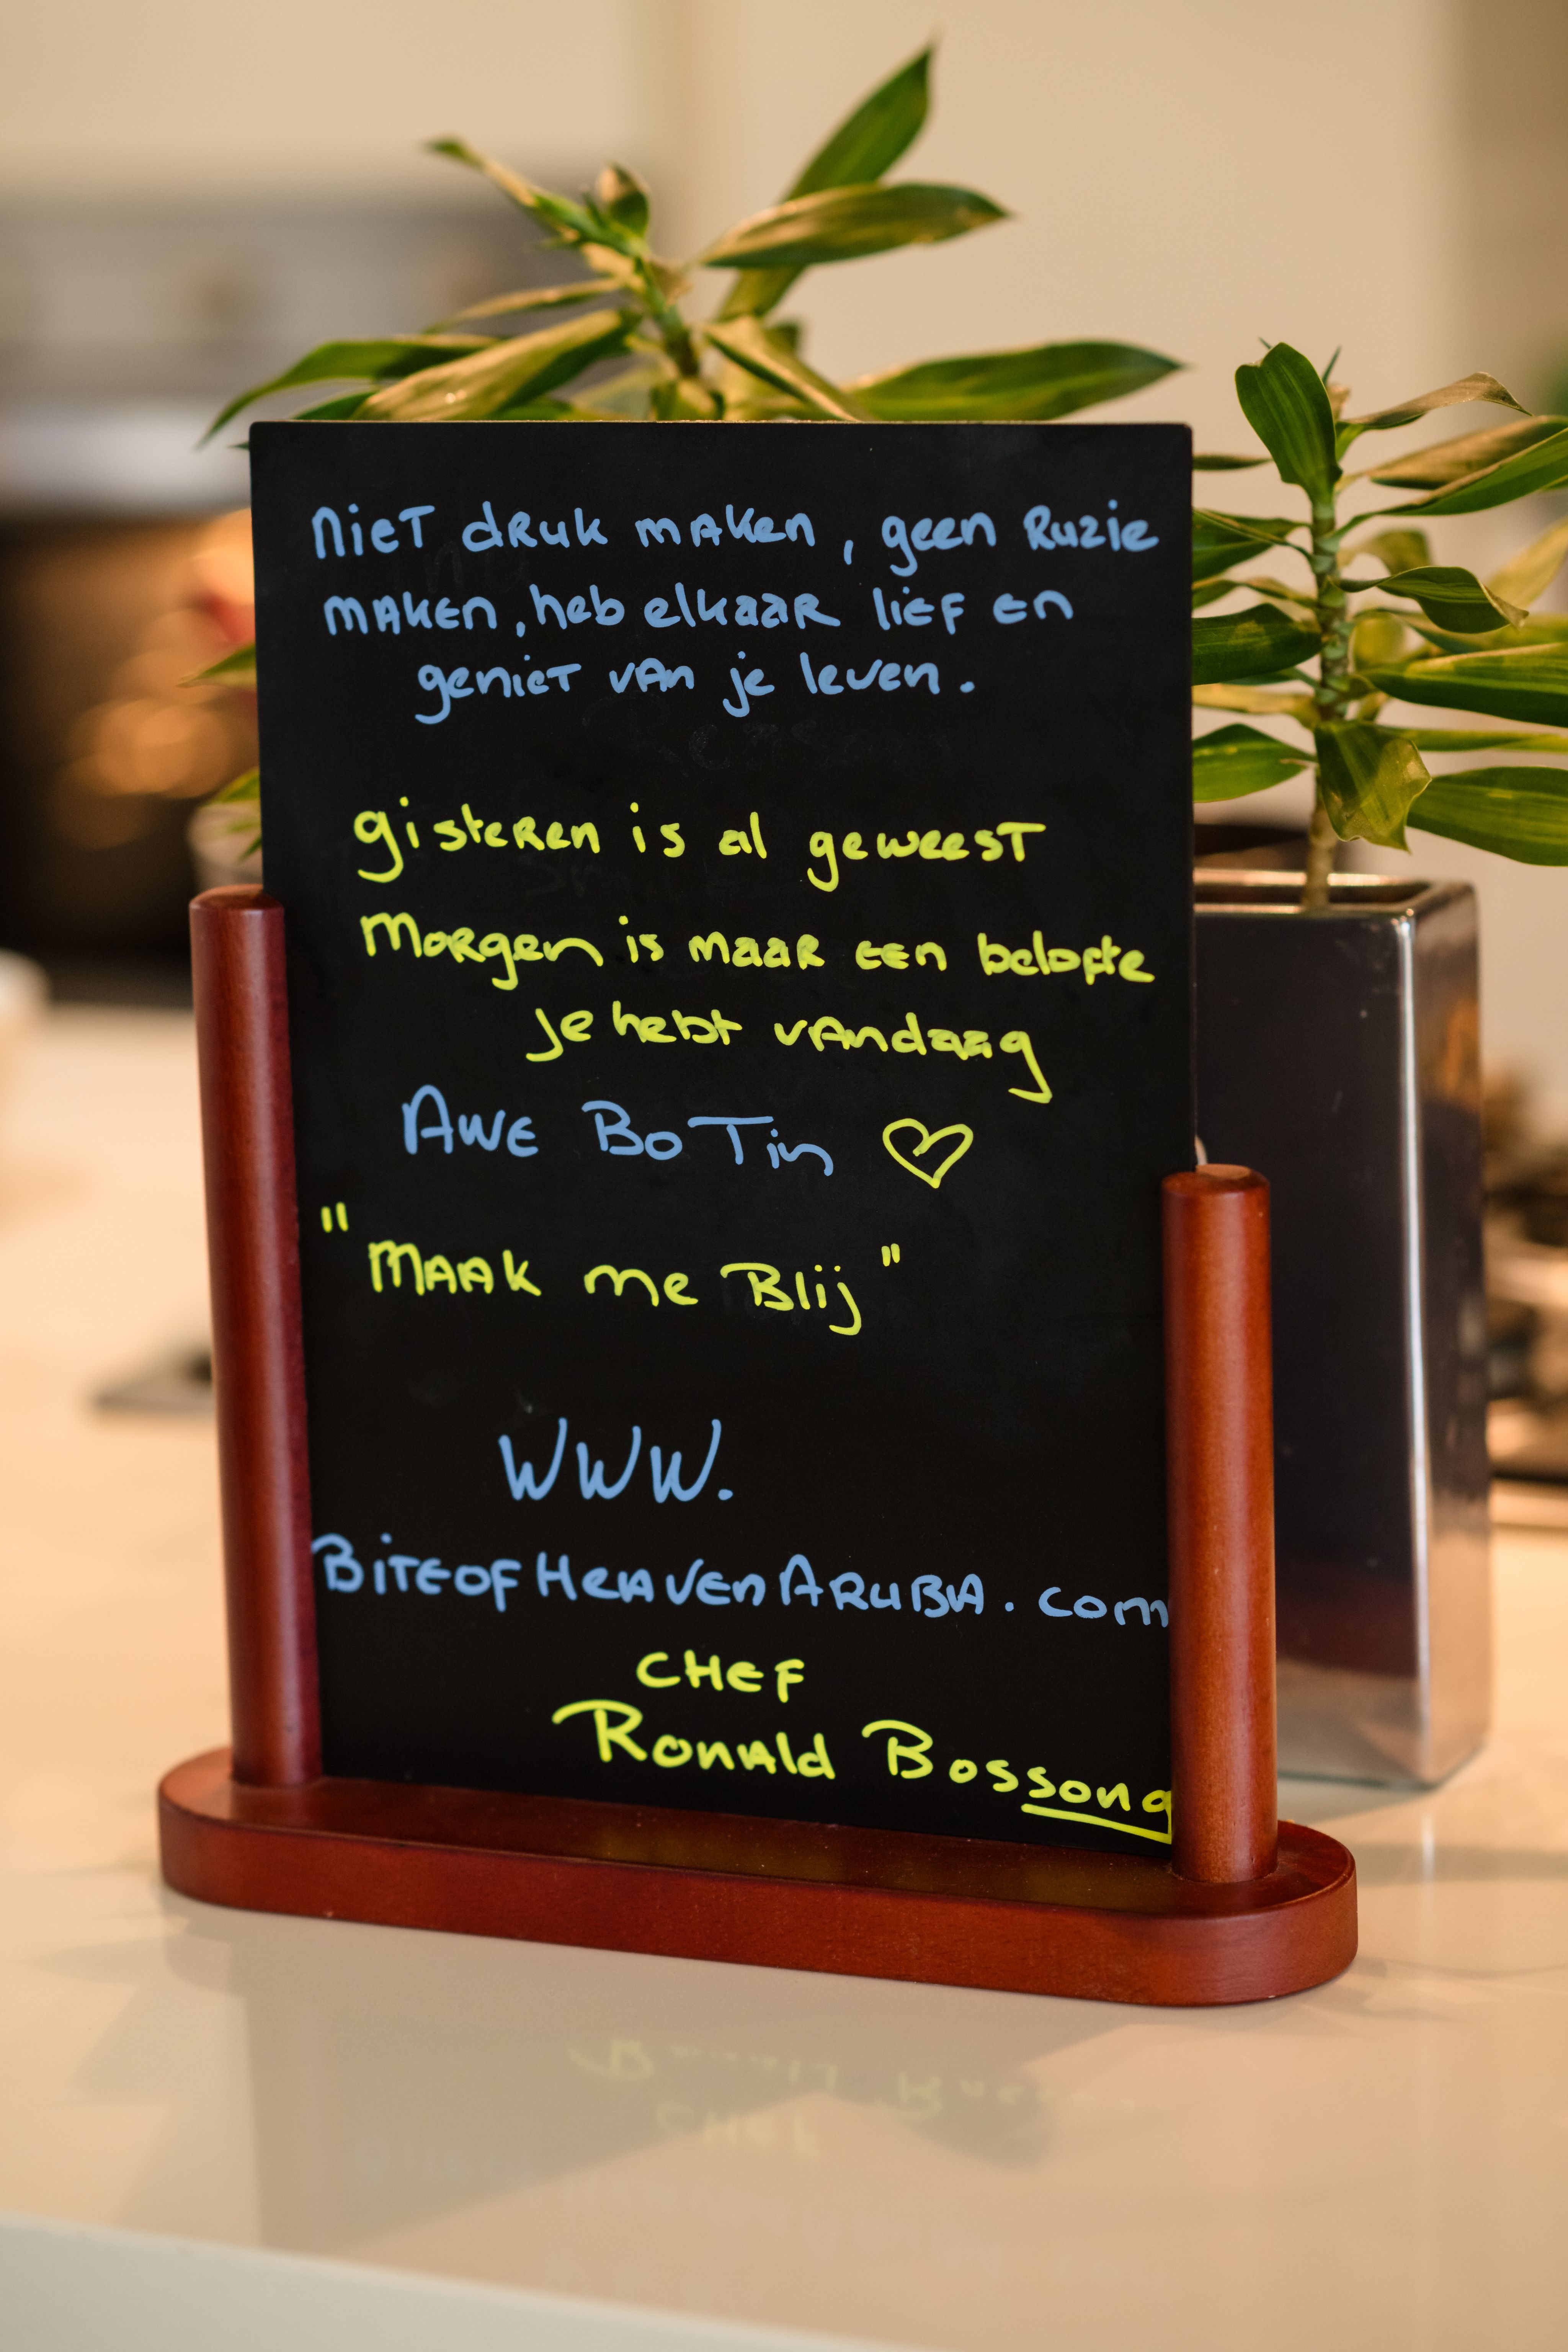 Niet druk maken, geen Ruzie
maken, heb elkaar lief en
geniet van je leven.
gisteren is al geweest
Morgen is maar een belofte
je hebt vandaag
AWE Bo Tin
"Maak me Blij"
WWW.
BiteofHeavenAruba.com
CHEF
Ronald Bossong